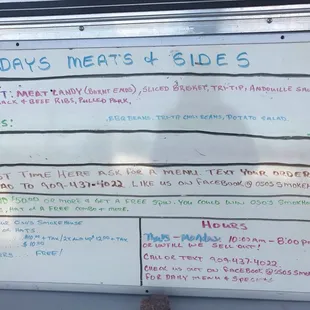 DAYS MEATS & SIDES
T: MEAT CANDY (BURNT ENDS), SLICED BRISKET, TRI-TIP, ANDOUILLE
ACK & BEEF RIBS, PULLED PORK,
S: BBQ BEANS, TRI-TIP CHILI BEANS, POTATO SALAD
ST TIME HERE ASK FOR A MENU. TEXT YOUR ORDER
AD TO 909-437-4022 LIKE US ON FACEBOOK@OSOSSMOKEH
OR MORE & GET A FREE SPIN. YOU COULD WIN OSOS SMOKEH
& MORE.
HOURS
SMOKEHOUSE
HATS
THURS - MONDAY 10:00AM - 8:00PM
OR UNTIL WE SELL OUT!
FREE!
CALL OR TEXT 909-437-4022
CHECK US OUT ON FACEBOOK@OSOSSMOK
FOR DAILY MENU & SPECIALS